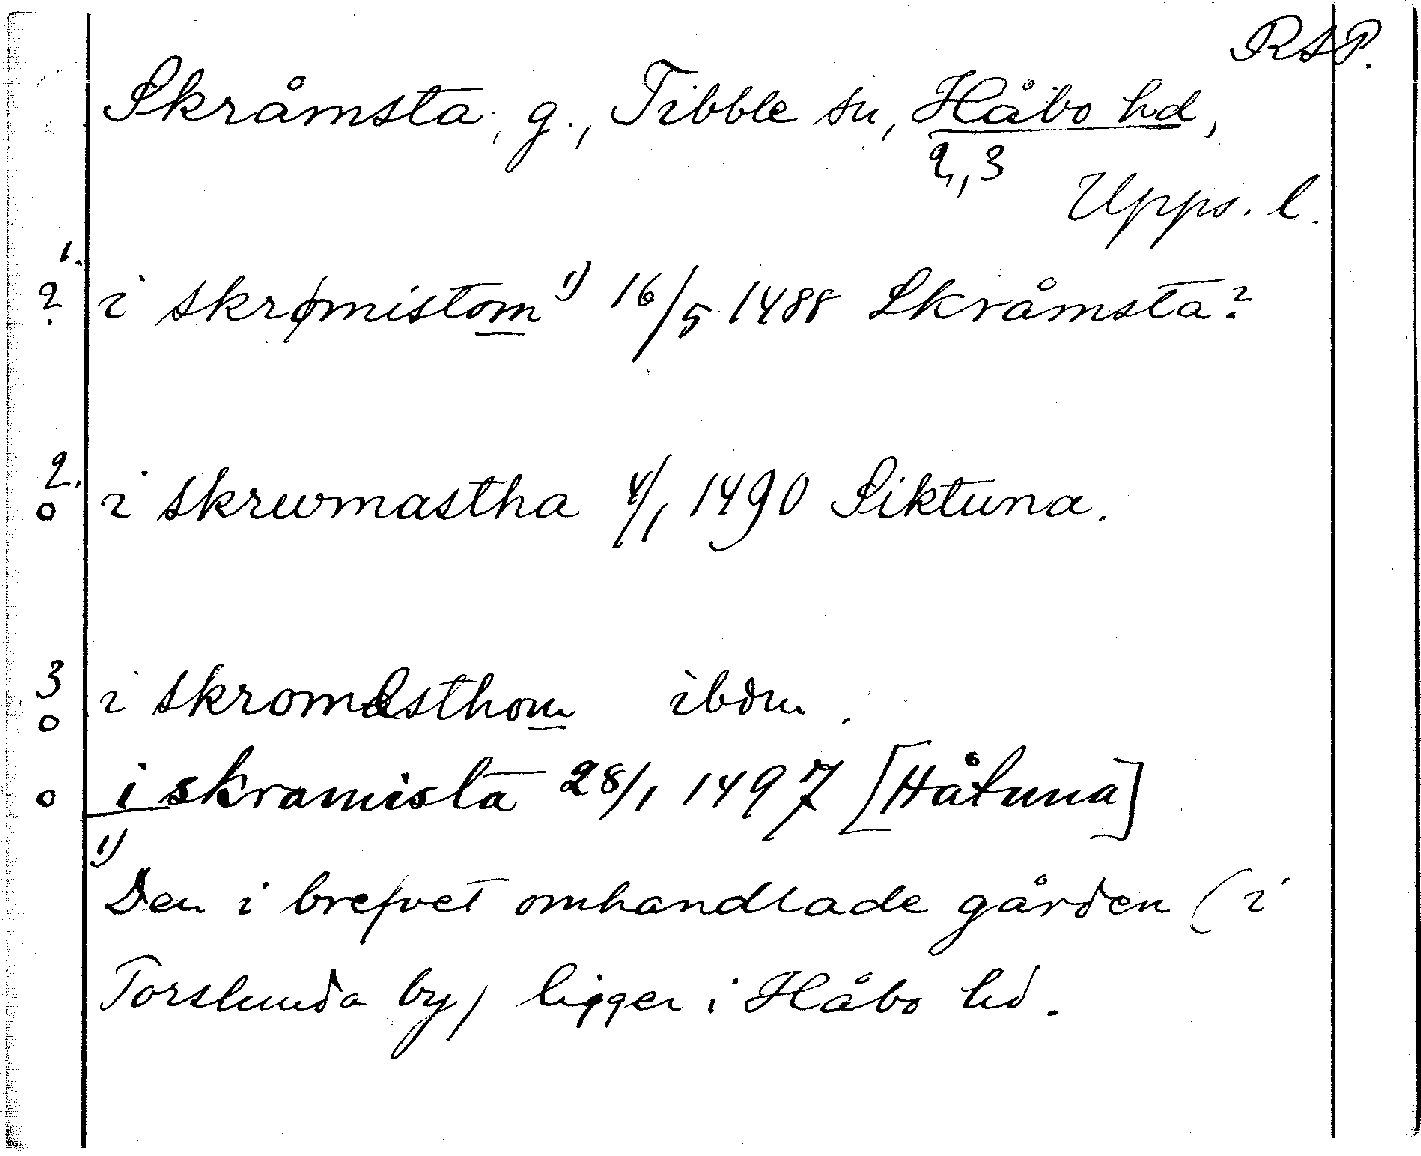 RAP.
Skråmsta, g., Tibble sn, Håbo hd,
2,3
Upps. l.
1.
? i skrømistom 1) 16/5 1488 Skråmsta?
2.
o i skrwmastha 4/1 1490 Siktuna.
3
o i skromesthom ibdm.
o i skramista 28/1 1497 [Håtuna]
1)
Den i brefvet omhandlade gården (i
Torslunda by) ligger i Håbo hd.